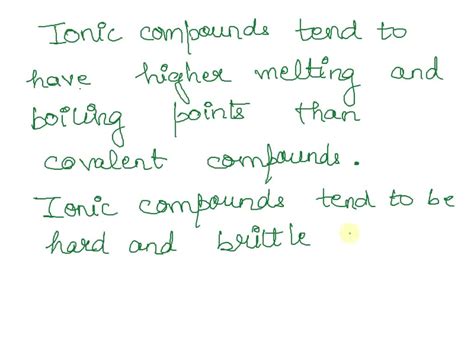 Ionic compounds tend to
have higher melting and
boiling points than
covalent compounds.
Ionic compounds tend to be
hard and brittle